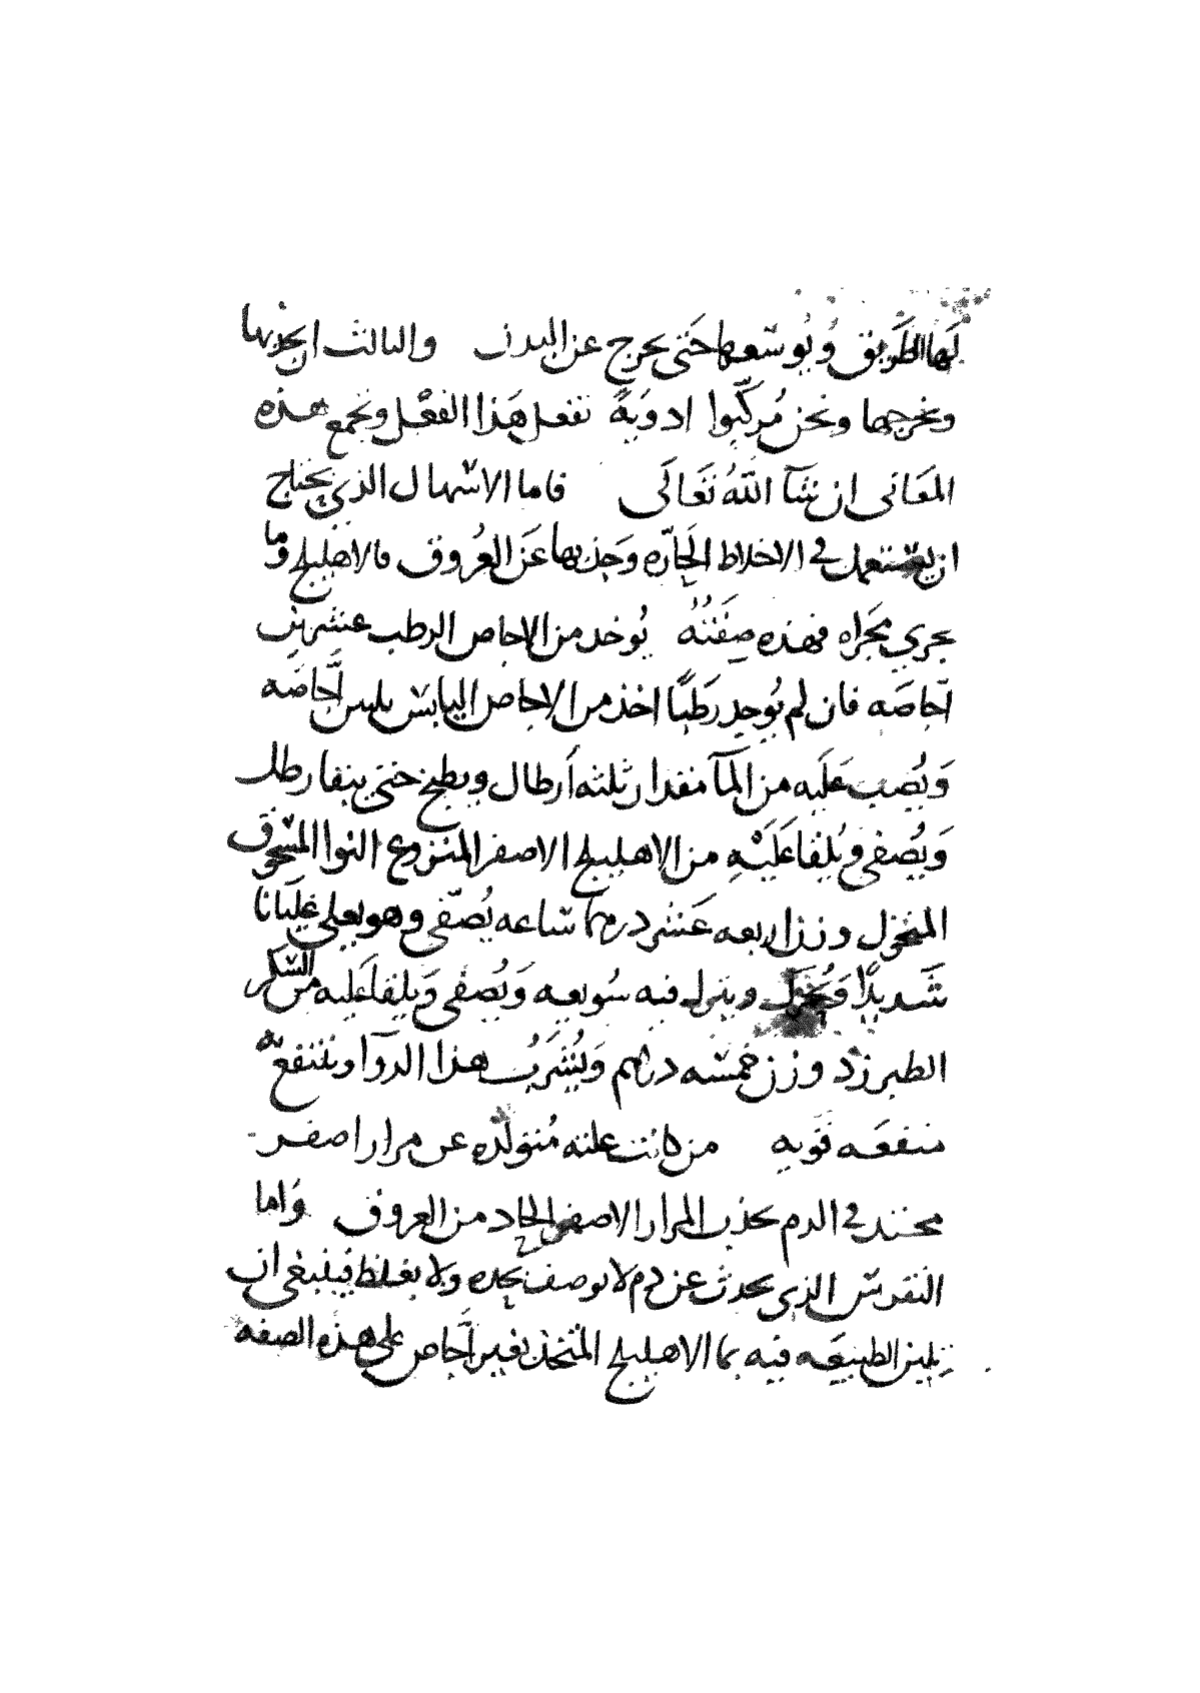 لها الطريق ويوسعها حتى يخرج عن البدن والثالث ان يجذبها
ويخرجها ونحن مركبوا ادوية تفعل هذا الفعل وتجمع هذه
المعاني ان شآ الله تعالى فاما الاسهال الذي يحتاج
ان يستعمل في الاخلاط الحاره وجذبها عن العروق فالاهليلج وما
يجري مجراه فهذه صفته يوخذ من الاجاص الرطب عشرين
اجاصه فان لم يوجد رطبًا اخذ من الاجاص اليابس ثلثين اجاصه
ويصب عليه من المآ مقدار ثلثه أرطال ويطبخ حتى يبقا رطل
ويصفى ويلقا عليه من الاهليلج الاصفر المنزوع النوا المسحوق
المنخول وزن اربعه عشر درهما ساعه يُصفّى وهو يغلي غليانا
شديدًا ويترك فيه سويعه ويُصفى ويلقا عليه من السكر
الطبرزد وزن خمسه دراهم ويُشرب هذا الدوآ وينتفع به
منفعه قويه من كانت علته مُتولّده عن مرار اصفر
محتد في الدم يجذب المرار الاصفر الحاد من العروق واما
النقرس الذي يحدث عن دم لا يوصف بحده ولا بغلظ فينبغي ان
يلين الطبيعه فيه بما الاهليلج المتخذ بغير اجاص على هذه الصفه